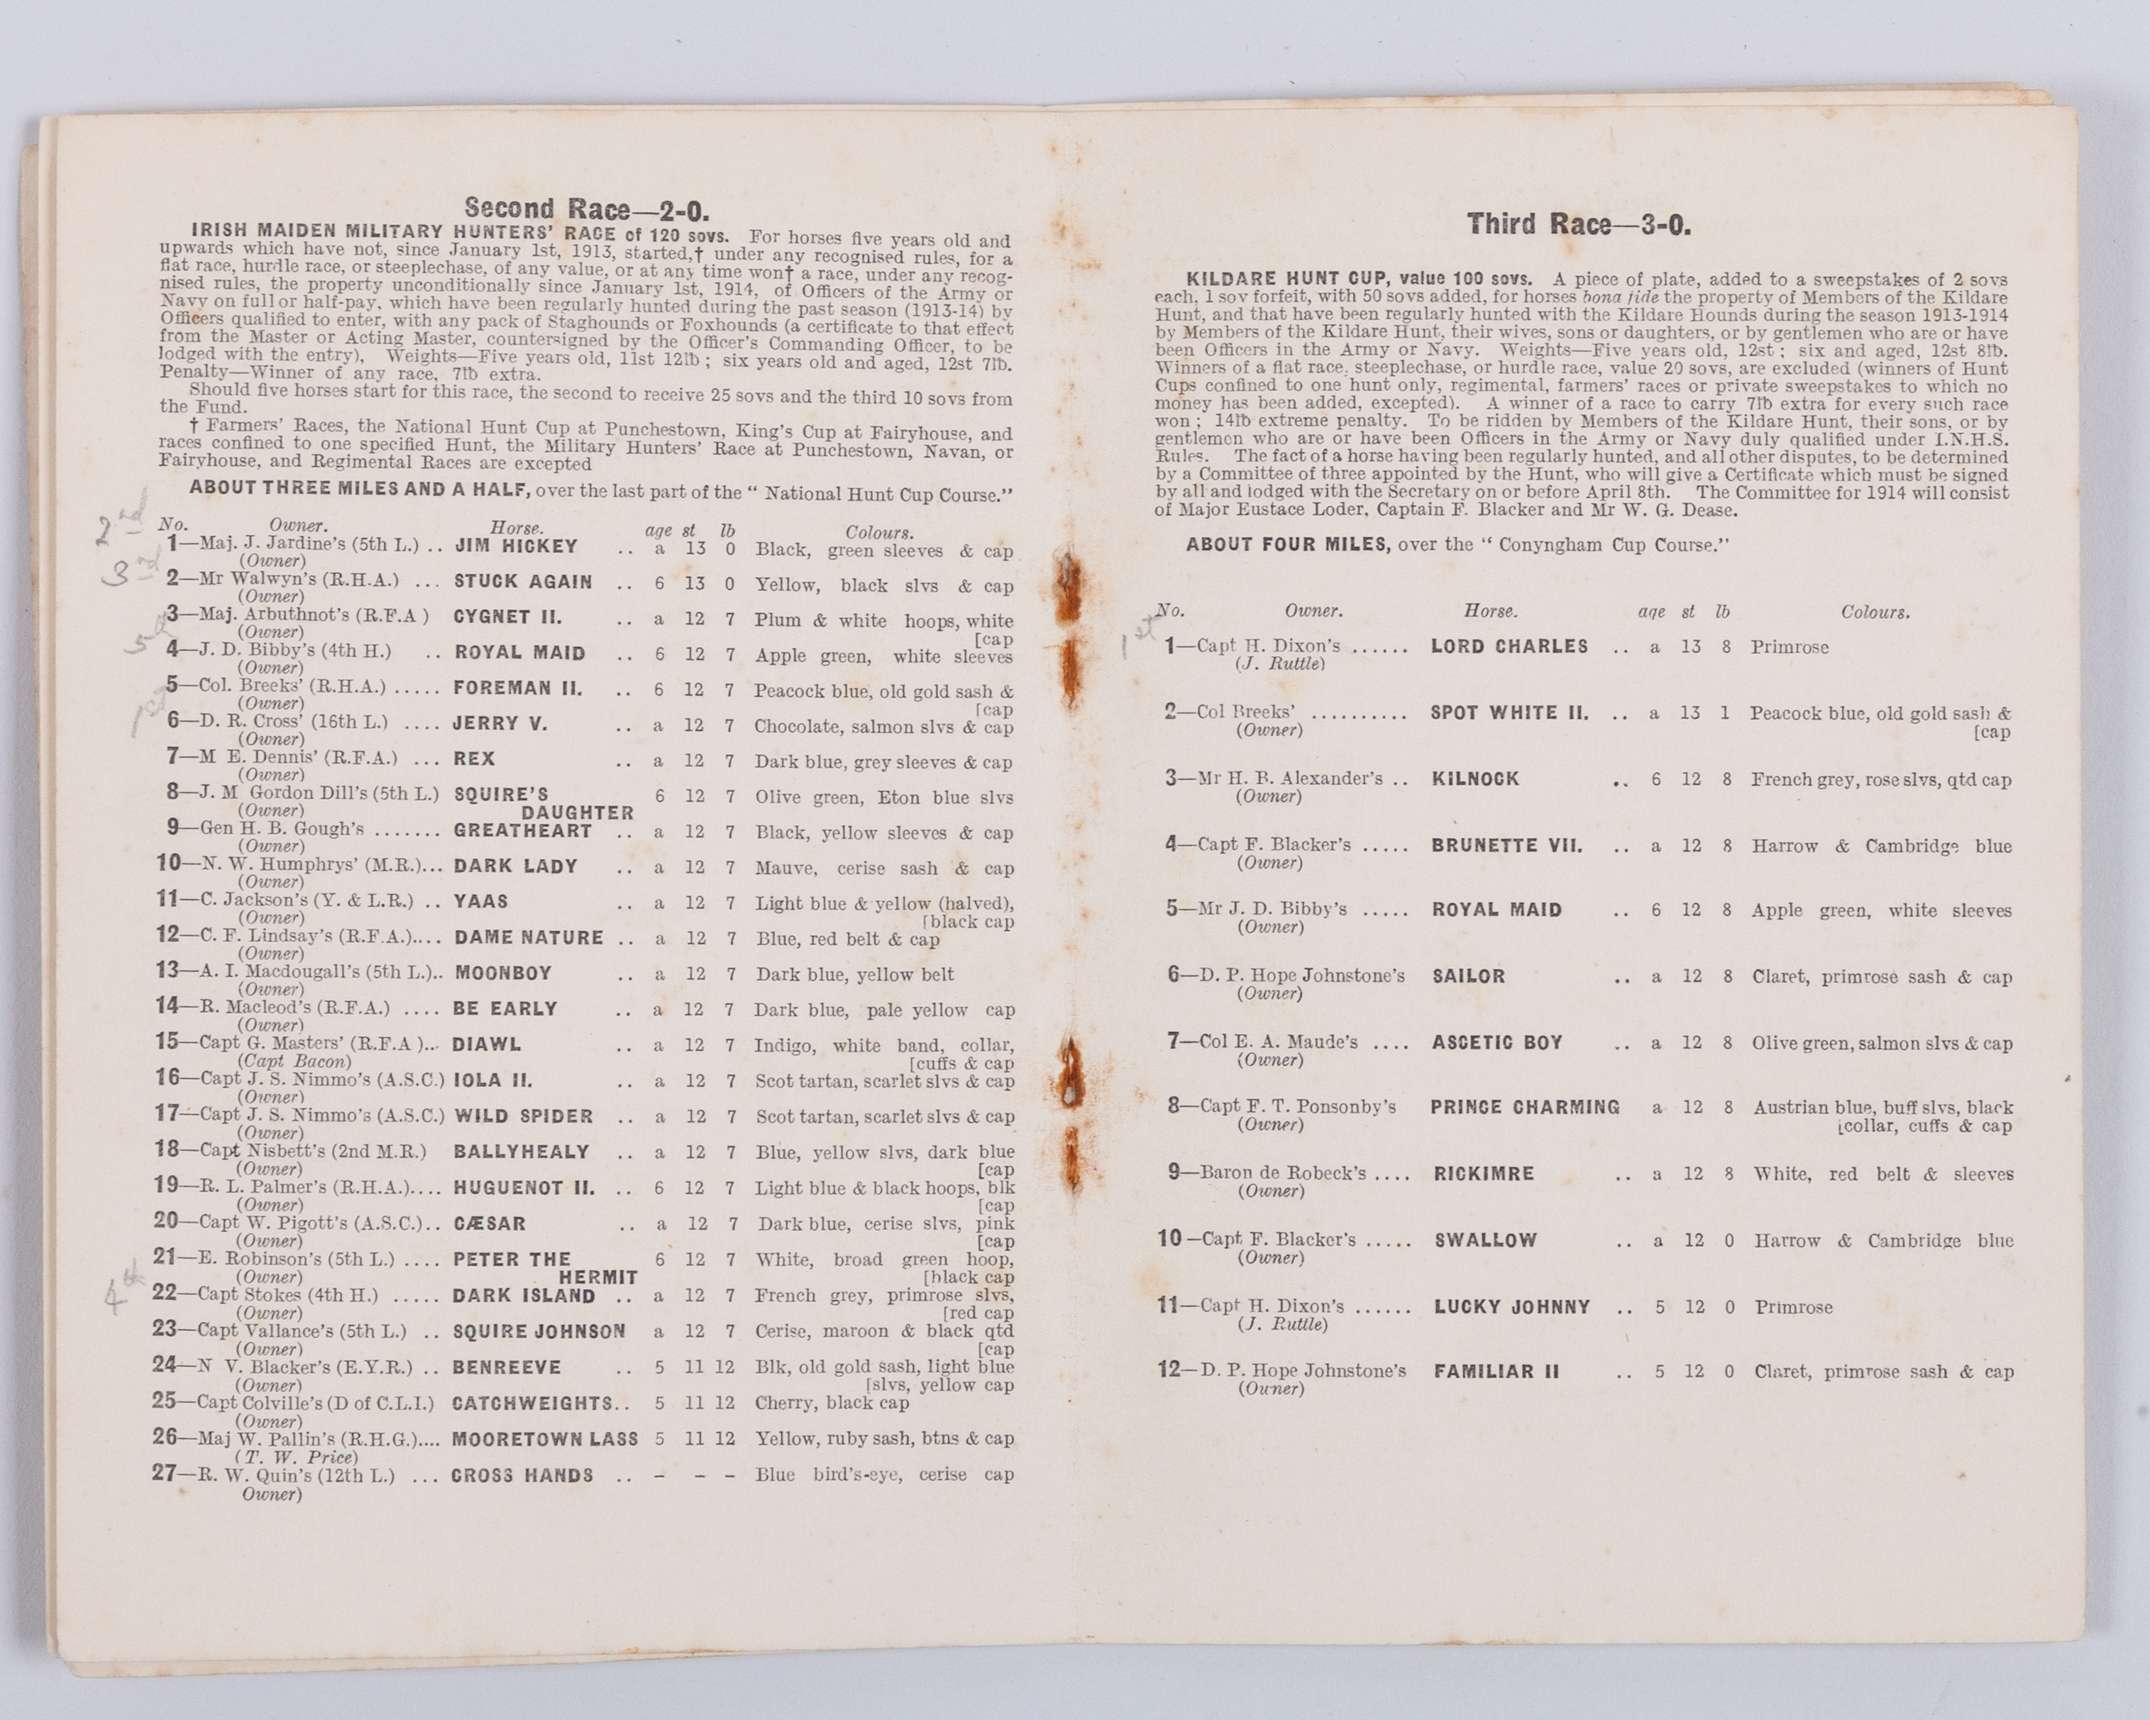 Second Race—2-0.
IRISH MAIDEN MILITARY HUNTERS' RACE of 120 sovs. For horses five years old and
upwards which have not, since January 1st, 1913, started,† under any recognised rules, for a
flat race, hurdle race, or steeplechase, of any value, or at any time won† a race, under any recog-
nised rules, the property unconditionally since January 1st, 1914, of Officers of the Army or
Navy on full or half-pay, which have been regularly hunted during the past season (1913-14) by
Officers qualified to enter, with any pack of Staghounds or Foxhounds (a certificate to that effect
from the Master or Acting Master, countersigned by the Officer's Commanding Officer, to be
lodged with the entry), Weights—Five years old, 11st 12lb; six years old and aged, 12st 7lb.
Penalty—Winner of any race, 7lb extra.
Should five horses start for this race, the second to receive 25 sovs and the third 10 sovs from
the Fund.
† Farmers' Races, the National Hunt Cup at Punchestown, King's Cup at Fairyhouse, and
races confined to one specified Hunt, the Military Hunters' Race at Punchestown, Navan, or
Fairyhouse, and Regimental Races are excepted
ABOUT THREE MILES AND A HALF, over the last part of the "National Hunt Cup Course."
No. Owner. Horse. age st lb Colours.
2nd 1—Maj. J. Jardine's (5th L.) .. JIM HICKEY .. a 13 0 Black, green sleeves & cap
(Owner)
3rd 2—Mr Walwyn's (R.H.A.) ... STUCK AGAIN .. 6 13 0 Yellow, black slvs & cap
(Owner)
3—Maj. Arbuthnot's (R.F.A ) CYGNET II. .. a 12 7 Plum & white hoops, white
(Owner) [cap
5th 4—J. D. Bibby's (4th H.) .. ROYAL MAID .. 6 12 7 Apple green, white sleeves
(Owner)
5—Col. Breeks' (R.H.A.) ..... FOREMAN II. .. 6 12 7 Peacock blue, old gold sash &
(Owner) [cap
1st 6—D. R. Cross' (16th L.) .... JERRY V. .. a 12 7 Chocolate, salmon slvs & cap
(Owner)
7—M E. Dennis' (R.F.A.) ... REX .. a 12 7 Dark blue, grey sleeves & cap
(Owner)
8—J. M Gordon Dill's (5th L.) SQUIRE'S 6 12 7 Olive green, Eton blue slvs
(Owner) DAUGHTER
9—Gen H. B. Gough's ....... GREATHEART .. a 12 7 Black, yellow sleeves & cap
(Owner)
10—N. W. Humphrys' (M.R.)... DARK LADY .. a 12 7 Mauve, cerise sash & cap
(Owner)
11—C. Jackson's (Y. & L.R.) .. YAAS .. a 12 7 Light blue & yellow (halved),
(Owner) [black cap
12—C. F. Lindsay's (R.F.A.).... DAME NATURE .. a 12 7 Blue, red belt & cap
(Owner)
13—A. I. Macdougall's (5th L.).. MOONBOY .. a 12 7 Dark blue, yellow belt
(Owner)
14—R. Macleod's (R.F.A.) .... BE EARLY .. a 12 7 Dark blue, pale yellow cap
(Owner)
15—Capt G. Masters' (R.F.A )... DIAWL .. a 12 7 Indigo, white band, collar,
(Capt Bacon) [cuffs & cap
16—Capt J. S. Nimmo's (A.S.C.) IOLA II. .. a 12 7 Scot tartan, scarlet slvs & cap
(Owner)
17—Capt J. S. Nimmo's (A.S.C.) WILD SPIDER .. a 12 7 Scot tartan, scarlet slvs & cap
(Owner)
18—Capt Nisbett's (2nd M.R.) BALLYHEALY .. a 12 7 Blue, yellow slvs, dark blue
(Owner) [cap
19—R. L. Palmer's (R.H.A.).... HUGUENOT II. .. 6 12 7 Light blue & black hoops, blk
(Owner) [cap
20—Capt W. Pigott's (A.S.C.).. CÆSAR .. a 12 7 Dark blue, cerise slvs, pink
(Owner) [cap
21—E. Robinson's (5th L.) .... PETER THE 6 12 7 White, broad green hoop,
(Owner) HERMIT [black cap
4th 22—Capt Stokes (4th H.) ..... DARK ISLAND .. a 12 7 French grey, primrose slvs,
(Owner) [red cap
23—Capt Vallance's (5th L.) .. SQUIRE JOHNSON a 12 7 Cerise, maroon & black qtd
(Owner) [cap
24—N V. Blacker's (E.Y.R.) .. BENREEVE .. 5 11 12 Blk, old gold sash, light blue
(Owner) [slvs, yellow cap
25—Capt Colville's (D of C.L.I.) CATCHWEIGHTS.. 5 11 12 Cherry, black cap
(Owner)
26—Maj W. Pallin's (R.H.G.).... MOORETOWN LASS 5 11 12 Yellow, ruby sash, btns & cap
(T. W. Price)
27—R. W. Quin's (12th L.) ... CROSS HANDS .. – – – Blue bird's-eye, cerise cap
Owner)
Third Race—3-0.
KILDARE HUNT CUP, value 100 sovs. A piece of plate, added to a sweepstakes of 2 sovs
each, 1 sov forfeit, with 50 sovs added, for horses bona fide the property of Members of the Kildare
Hunt, and that have been regularly hunted with the Kildare Hounds during the season 1913-1914
by Members of the Kildare Hunt, their wives, sons or daughters, or by gentlemen who are or have
been Officers in the Army or Navy. Weights—Five years old, 12st; six and aged, 12st 8lb.
Winners of a flat race, steeplechase, or hurdle race, value 20 sovs, are excluded (winners of Hunt
Cups confined to one hunt only, regimental, farmers' races or private sweepstakes to which no
money has been added, excepted). A winner of a race to carry 7lb extra for every such race
won; 14lb extreme penalty. To be ridden by Members of the Kildare Hunt, their sons, or by
gentlemen who are or have been Officers in the Army or Navy duly qualified under I.N.H.S.
Rules. The fact of a horse having been regularly hunted, and all other disputes, to be determined
by a Committee of three appointed by the Hunt, who will give a Certificate which must be signed
by all and lodged with the Secretary on or before April 8th. The Committee for 1914 will consist
of Major Eustace Loder, Captain F. Blacker and Mr W. G. Dease.
ABOUT FOUR MILES, over the "Conyngham Cup Course."
No. Owner. Horse. age st lb Colours.
1st 1—Capt H. Dixon's ...... LORD CHARLES .. a 13 8 Primrose
(J. Ruttle)
2—Col Breeks' .......... SPOT WHITE II. .. a 13 1 Peacock blue, old gold sash &
(Owner) [cap
3—Mr H. B. Alexander's .. KILNOCK .. 6 12 8 French grey, rose slvs, qtd cap
(Owner)
4—Capt F. Blacker's ..... BRUNETTE VII. .. a 12 8 Harrow & Cambridge blue
(Owner)
5—Mr J. D. Bibby's ..... ROYAL MAID .. 6 12 8 Apple green, white sleeves
(Owner)
6—D. P. Hope Johnstone's SAILOR .. a 12 8 Claret, primrose sash & cap
(Owner)
7—Col E. A. Maude's .... ASCETIC BOY .. a 12 8 Olive green, salmon slvs & cap
(Owner)
8—Capt F. T. Ponsonby's PRINCE CHARMING a 12 8 Austrian blue, buff slvs, black
(Owner) [collar, cuffs & cap
9—Baron de Robeck's .... RICKIMRE .. a 12 8 White, red belt & sleeves
(Owner)
10—Capt F. Blacker's ..... SWALLOW .. a 12 0 Harrow & Cambridge blue
(Owner)
11—Capt H. Dixon's ...... LUCKY JOHNNY .. 5 12 0 Primrose
(J. Ruttle)
12—D. P. Hope Johnstone's FAMILIAR II .. 5 12 0 Claret, primrose sash & cap
(Owner)